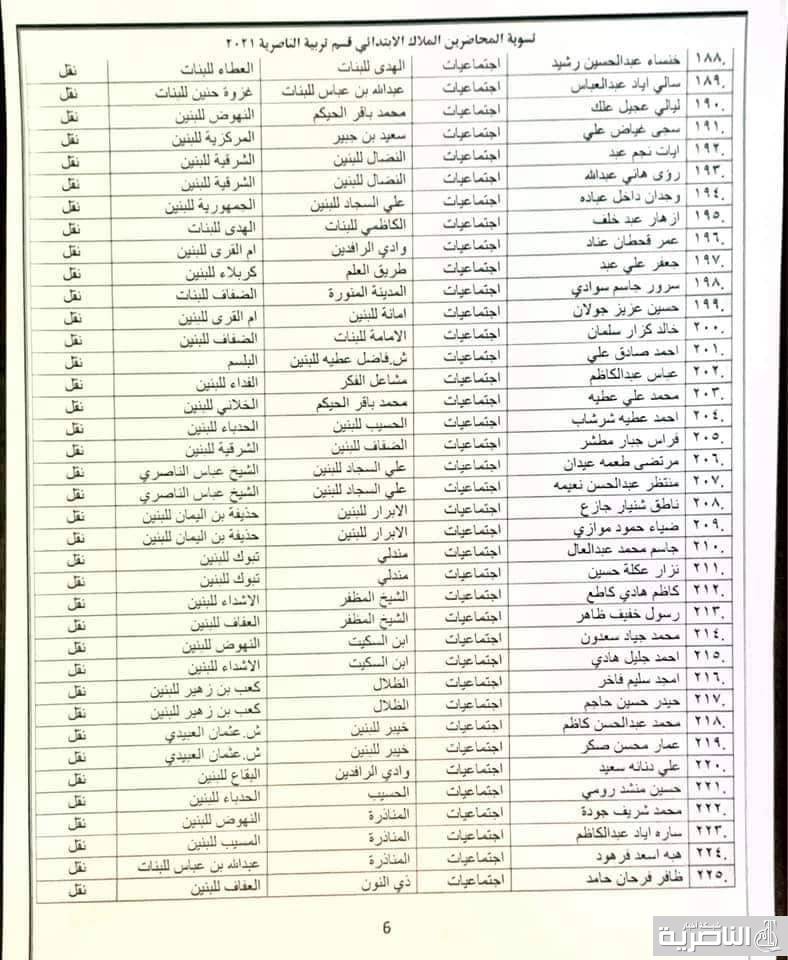 تسوية المحاضرين الملاك الابتدائي قسم تربية الناصرية ٢٠٢١
١٨٨. خنساء عبدالحسين رشيد اجتماعيات الهدى للبنات العطاء للبنات نقل
١٨٩. سالي اياد عبدالعباس اجتماعيات عبدالله بن عباس للبنات غزوة حنين للبنات نقل
١٩٠. ليالي عجيل علك اجتماعيات محمد باقر الحيكم النهوض للبنين نقل
١٩١. سجى غياض علي اجتماعيات سعيد بن جبير المركزية للبنين نقل
١٩٢. ايات نجم عبد اجتماعيات النضال للبنين الشرقية للبنين نقل
١٩٣. رؤى هاني عبدالله اجتماعيات النضال للبنين الشرقية للبنين نقل
١٩٤. وجدان داخل عباده اجتماعيات علي السجاد للبنين الجمهورية للبنين نقل
١٩٥. ازهار عبد خلف اجتماعيات الكاظمي للبنات الهدى للبنات نقل
١٩٦. عمر قحطان عناد اجتماعيات وادي الرافدين ام القرى للبنين نقل
١٩٧. جعفر علي عبد اجتماعيات طريق العلم كربلاء للبنين نقل
١٩٨. سرور جاسم سوادي اجتماعيات المدينة المنورة الضفاف للبنات نقل
١٩٩. حسين عزيز جولان اجتماعيات امانة للبنين ام القرى للبنين نقل
٢٠٠. خالد كزار سلمان اجتماعيات الامامة للبنات الضفاف للبنين نقل
٢٠١. احمد صادق علي اجتماعيات ش.فاضل عطيه للبنين البلسم نقل
٢٠٢. عباس عبدالكاظم اجتماعيات مشاعل الفكر الفداء للبنين نقل
٢٠٣. محمد علي عطيه اجتماعيات محمد باقر الحيكم الخلاني للبنين نقل
٢٠٤. احمد عطيه شرشاب اجتماعيات الحسيب للبنين الحدباء للبنين نقل
٢٠٥. فراس جبار مطشر اجتماعيات الضفاف للبنين الشرقية للبنين نقل
٢٠٦. مرتضى طعمه عيدان اجتماعيات علي السجاد للبنين الشيخ عباس الناصري نقل
٢٠٧. منتظر عبدالحسن نعيمه اجتماعيات علي السجاد للبنين الشيخ عباس الناصري نقل
٢٠٨. ناطق شنيار جازع اجتماعيات الابرار للبنين حذيفة بن اليمان للبنين نقل
٢٠٩. ضياء حمود موازي اجتماعيات الابرار للبنين حذيفة بن اليمان للبنين نقل
٢١٠. جاسم محمد عبدالعال اجتماعيات مندلي تبوك للبنين نقل
٢١١. نزار عكلة حسين اجتماعيات مندلي تبوك للبنين نقل
٢١٢. كاظم هادي كاطع اجتماعيات الشيخ المظفر الاشداء للبنين نقل
٢١٣. رسول خفيف ظاهر اجتماعيات الشيخ المظفر العفاف للبنين نقل
٢١٤. محمد جياد سعدون اجتماعيات ابن السكيت النهوض للبنين نقل
٢١٥. احمد جليل هادي اجتماعيات ابن السكيت الاشداء للبنين نقل
٢١٦. امجد سليم فاخر اجتماعيات الظلال كعب بن زهير للبنين نقل
٢١٧. حيدر حسين حاجم اجتماعيات الظلال كعب بن زهير للبنين نقل
٢١٨. محمد عبدالحسن كاظم اجتماعيات خيبر للبنين ش.عثمان العبيدي نقل
٢١٩. عمار محسن صكر اجتماعيات خيبر للبنين ش.عثمان العبيدي نقل
٢٢٠. علي دنانه سعيد اجتماعيات وادي الرافدين البقاع للبنين نقل
٢٢١. حسين منشد رومي اجتماعيات الحسيب الحدباء للبنين نقل
٢٢٢. محمد شريف جودة اجتماعيات المناذرة النهوض للبنين نقل
٢٢٣. ساره اياد عبدالكاظم اجتماعيات المناذرة المسيب للبنين نقل
٢٢٤. هبه اسعد فرهود اجتماعيات المناذرة عبدالله بن عباس للبنات نقل
٢٢٥. ظافر فرحان حامد اجتماعيات ذي النون العفاف للبنين نقل
6
الناصرية